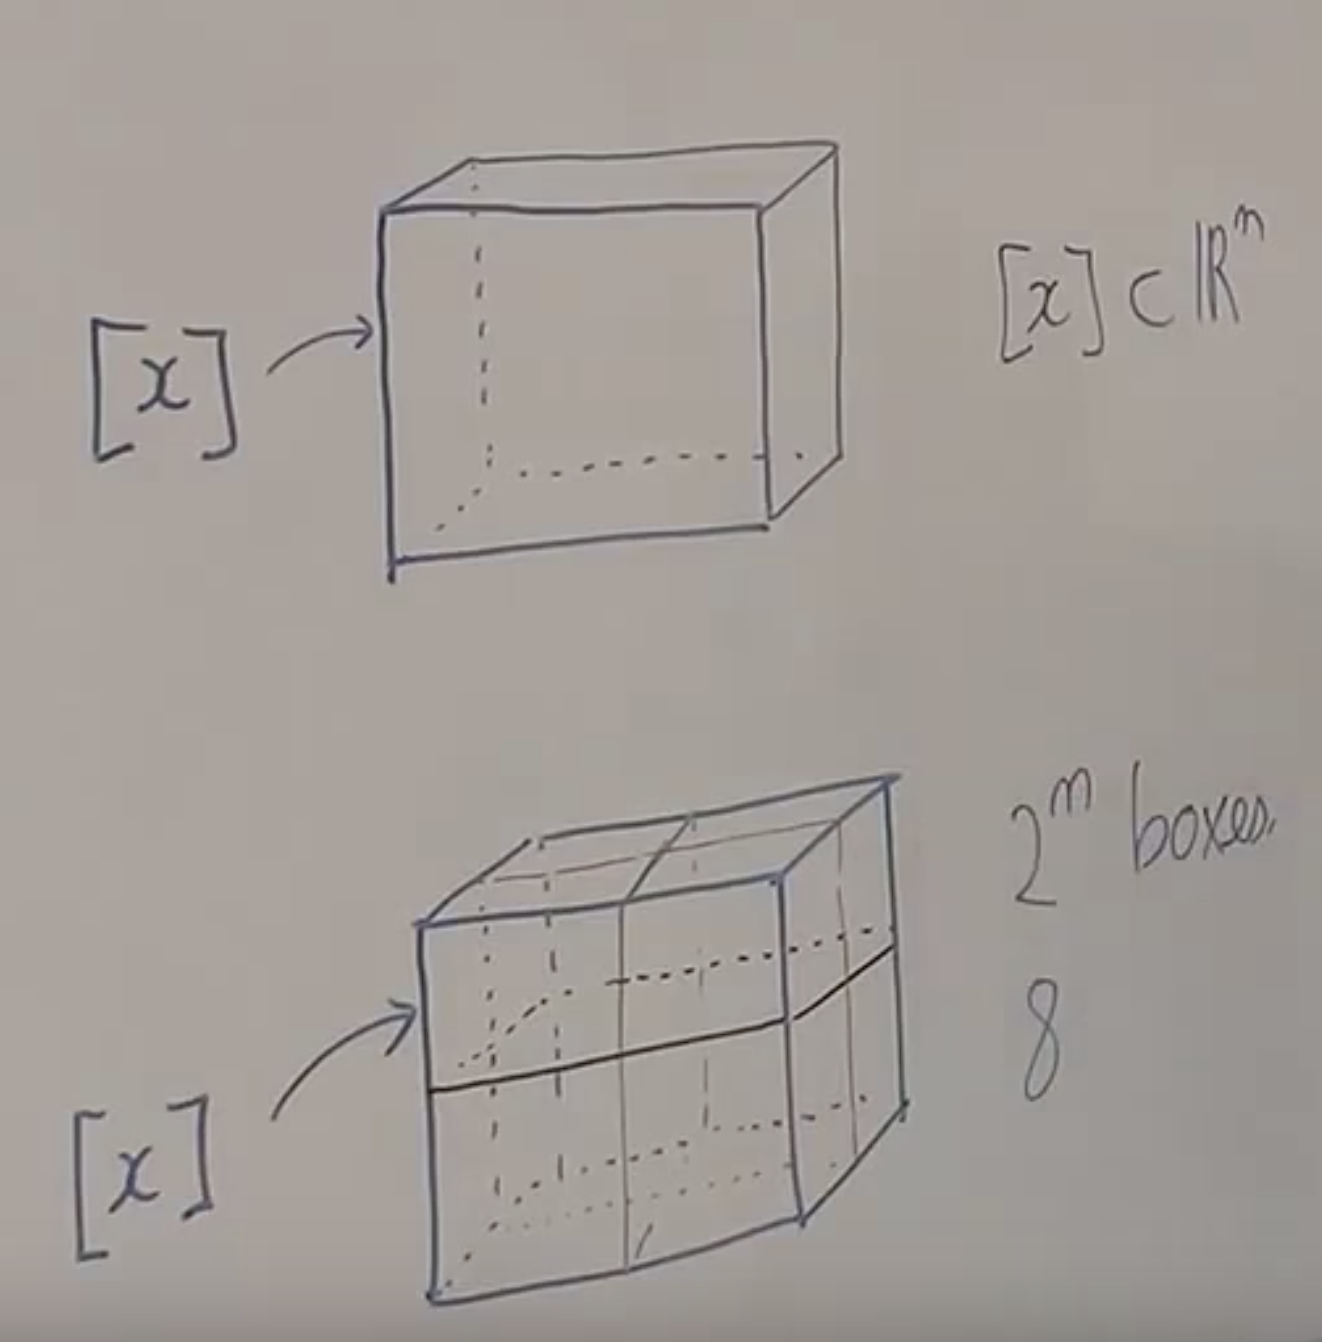 [x]
[x] ⊂ ℝⁿ
2ⁿ boxes.
8
[x]